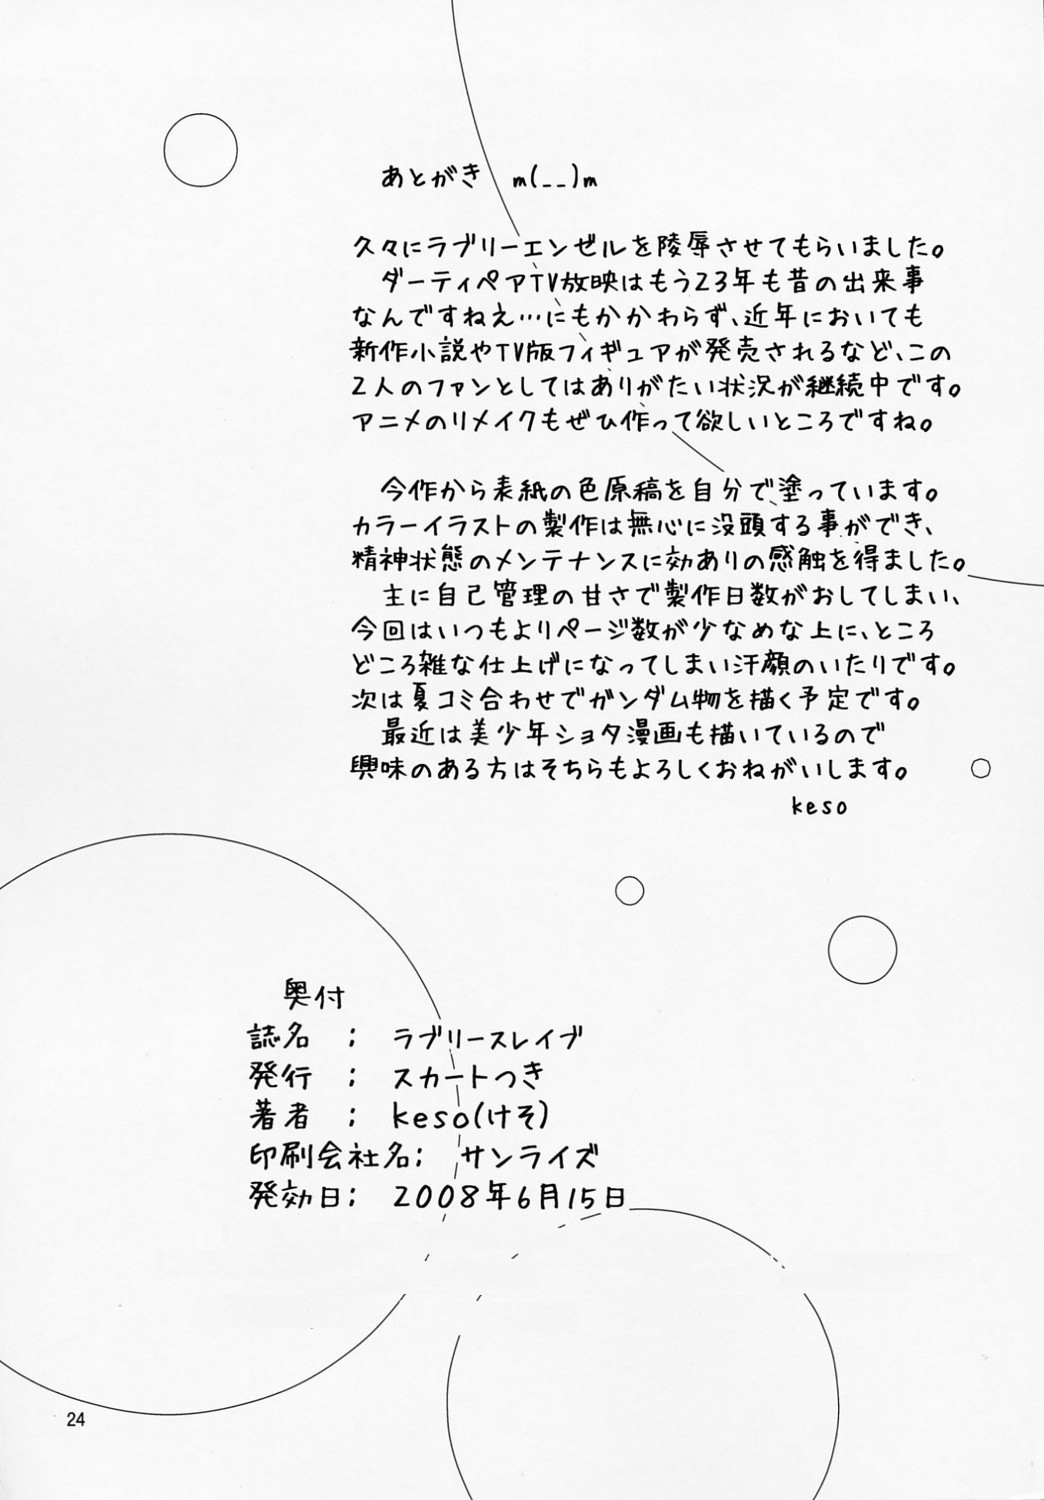 あとがき　m(__)m
久々にラブリーエンゼルを陵辱させてもらいました。
ダーティペアTV放映はもう23年も昔の出来事
なんですねえ…にもかかわらず、近年においても
新作小説やTV版フィギュアが発売されるなど、この
2人のファンとしてはありがたい状況が継続中です。
アニメのリメイクもぜひ作って欲しいところですね。
今作から表紙の色原稿を自分で塗っています。
カラーイラストの製作は無心に没頭する事ができ、
精神状態のメンテナンスに効ありの感触を得ました。
主に自己管理の甘さで製作日数がおしてしまい、
今回はいつもよりページ数が少なめな上に、ところ
どころ雑な仕上げになってしまい汗顔のいたりです。
次は夏コミ合わせでガンダム物を描く予定です。
最近は美少年ショタ漫画も描いているので
興味のある方はそちらもよろしくおねがいします。
keso
奥付
誌名　：　ラブリースレイブ
発行　：　スカートつき
著者　：　keso(けそ)
印刷会社名；　サンライズ
発効日；　2008年6月15日
24